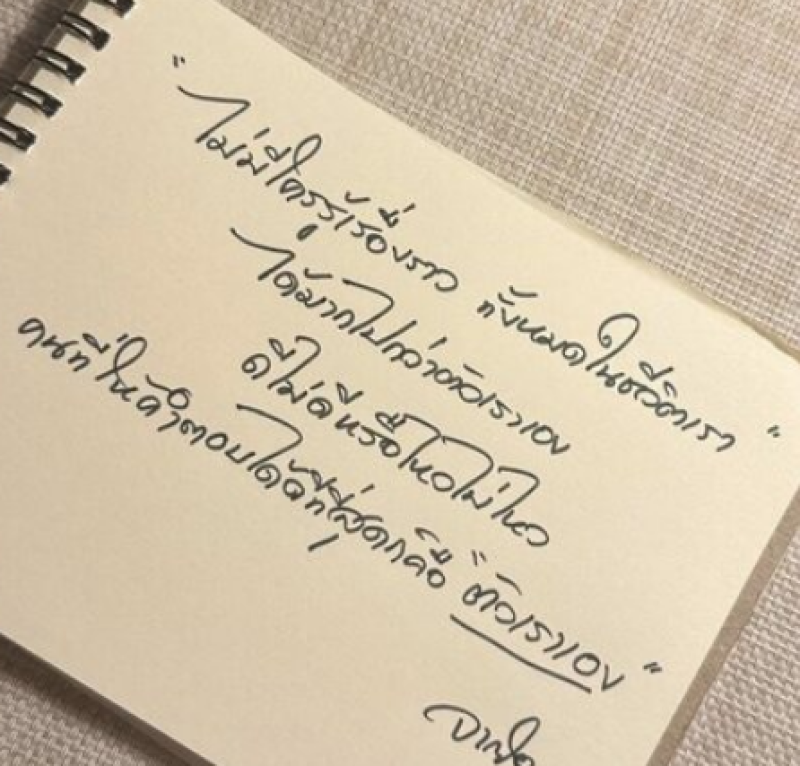 "ไม่มีใครรู้เรื่องราว ทั้งหมดในชีวิตเรา"
ได้มากไปกว่าตัวเราเอง
ดีไม่ดีหรือไหวไม่ไหว
คนที่ให้คำตอบได้ดีที่สุดก็คือ "ตัวเราเอง"